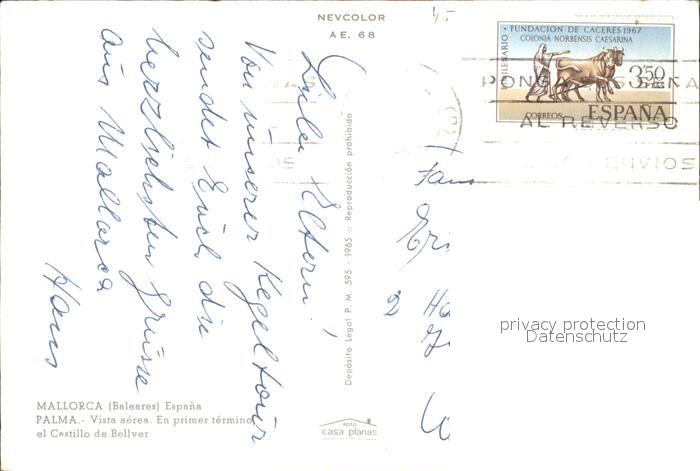 NEVCOLOR
AE. 68
Liebe Eltern!
Von unserer Kegeltour
sendet Euch die
herzlichsten Grüsse
aus Mallorca
Hans
MALLORCA (Baleares) España
PALMA.- Vista aérea. En primer término,
el Castillo de Bellver
Depósito Legal P. M. 595 - 1965 - Reproducción prohibida
FOTO
casa planas
BIMILENARIO • FUNDACION DE CACERES 1967
COLONIA NORBENSIS CAESARINA
3'50
PTAS
CORREOS
ESPAÑA
PONGA SU SEÑA
AL REVERSO
ENVIOS
Fam
2 Ha
privacy protection
Datenschutz